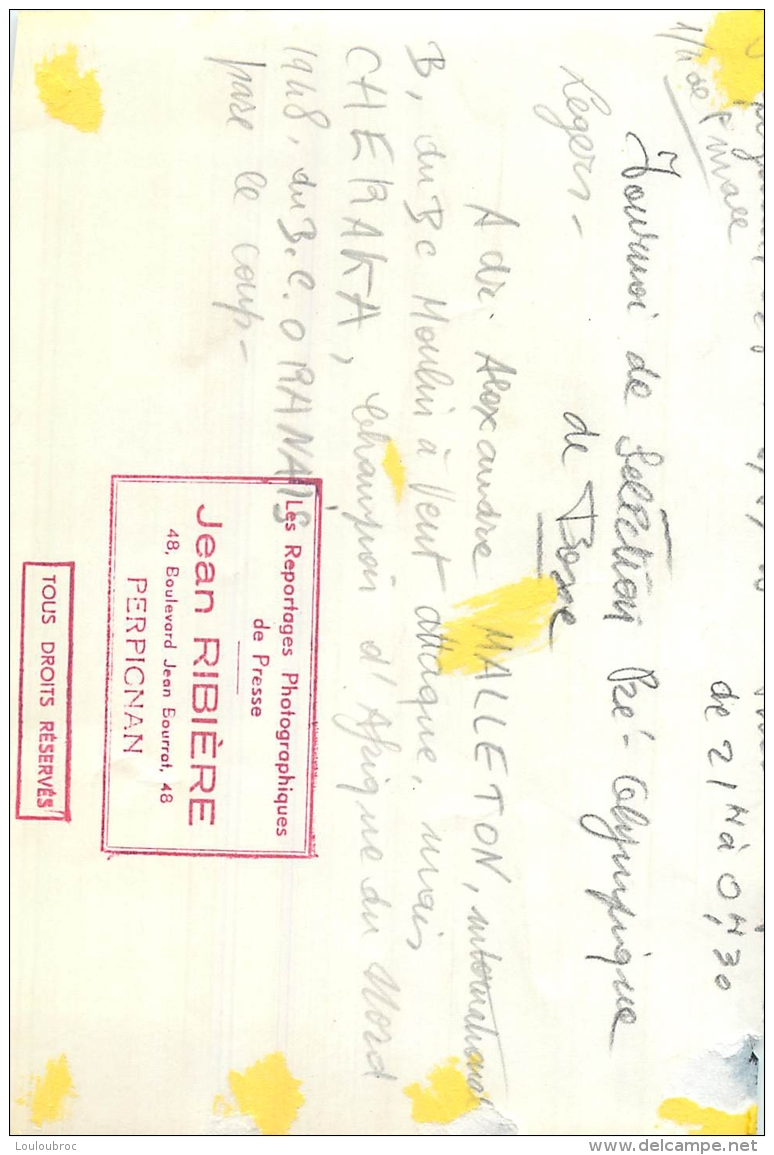 de 21H à 0H,30
1/4 de finale
Tournoi de Sélection Pré-Olympique
de Boxe
Légers -
A dr. Alexandre MALLETON, international
B, du BC Moulin à Vent attaque, mais
CHERAKA, Champion d'Afrique du Nord
1948, du B.C. ORANAIS
pare le coup -
Les Reportages Photographiques
de Presse
Jean RIBIÈRE
48, Boulevard Jean Bourrat, 48
PERPIGNAN
TOUS DROITS RÉSERVÉS
Louloubroc
www.delcampe.net